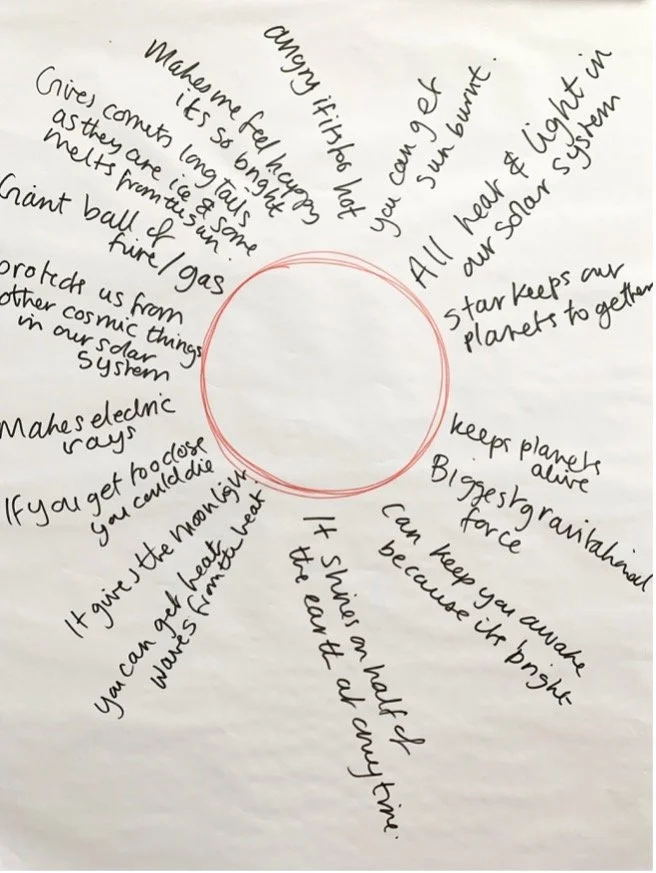 angry if it's too hot
you can get
sun burnt.
All heat & light in
our solar system
Star keeps our
planets together
keeps planets
alive
Biggest gravitational
force
can keep you awake
because its bright
It shines on half of
the earth at any time.
you can get heat
waves from the heat
It gives the moon light
If you get too close
you could die
Makes electric
rays
protects us from
other cosmic things
in our solar
system
Giant ball of
fire/gas
Gives comets long tails
as they are ice & some
melts from the sun.
Makes me feel happy
its so bright